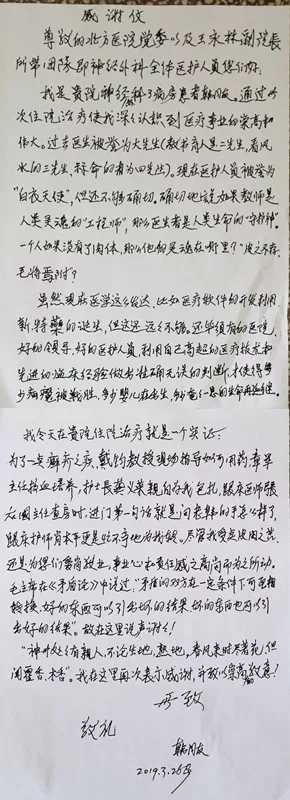 感谢信
尊敬的北方医院党委以及王永林副院长
所带团队即神经外科全体医护人员您们好:
我是贵院神经科了病房患者韩风友。通过
次住院治疗使我深深认识到医疗事业的崇高和
伟大。过去医生被誉为大先生(教书育人是二先生,看风
水的三先生,称命的者为四先生)。现在医护人员被誉为
"白衣天使",但还不够确切。确切地应如果教师是
人类灵魂的"工程师",那么医生者是人类生命的"守护神"。
一个人如果没有了肉体,那么他的灵魂在哪里?"皮之不存,
毛将焉附?
虽然现在医学这么发达,比如医疗软件的开发利用
新特药的诞生,但这还远远不够。还必须有好的医德,
好的领导,好的医护人员,利用自己高超的医疗技术和
先进的临床经验做出准确无误的判断,才使得多
少病魔被战胜,多少婴儿在出生,多少奄奄一息的生命再延继。
我今天在贵院住院治疗就是一个实证:
为了一点癣疥之疾,戴钧教授现场指导如何用药,章革
主任抽血培养,护士长龚义荣亲自给我包扎,临床医师张
宏国主任查房时,进门第一句话就是问老韩的手怎么样了,
临床护师肖术更是吃不辛地为我服。尽管我是皮肉之苦,
还是为你们爱岗敬业,事业心和责任感之高尚而为之所动。
毛主席在《矛盾论》中说过:"矛盾的双方在一定条件下可互相
转换,好的东西可以引出坏的结果,坏的东西也可以引
出好的结果"。故在这里说声谢谢!
"神州处处有亲人,不论生地、熟地,春风来时尽著花,但
闻藿香、木香"。我在这里再次表示感谢,并致以崇高的敬意!
此致
敬礼
韩风友
2019.3.26号